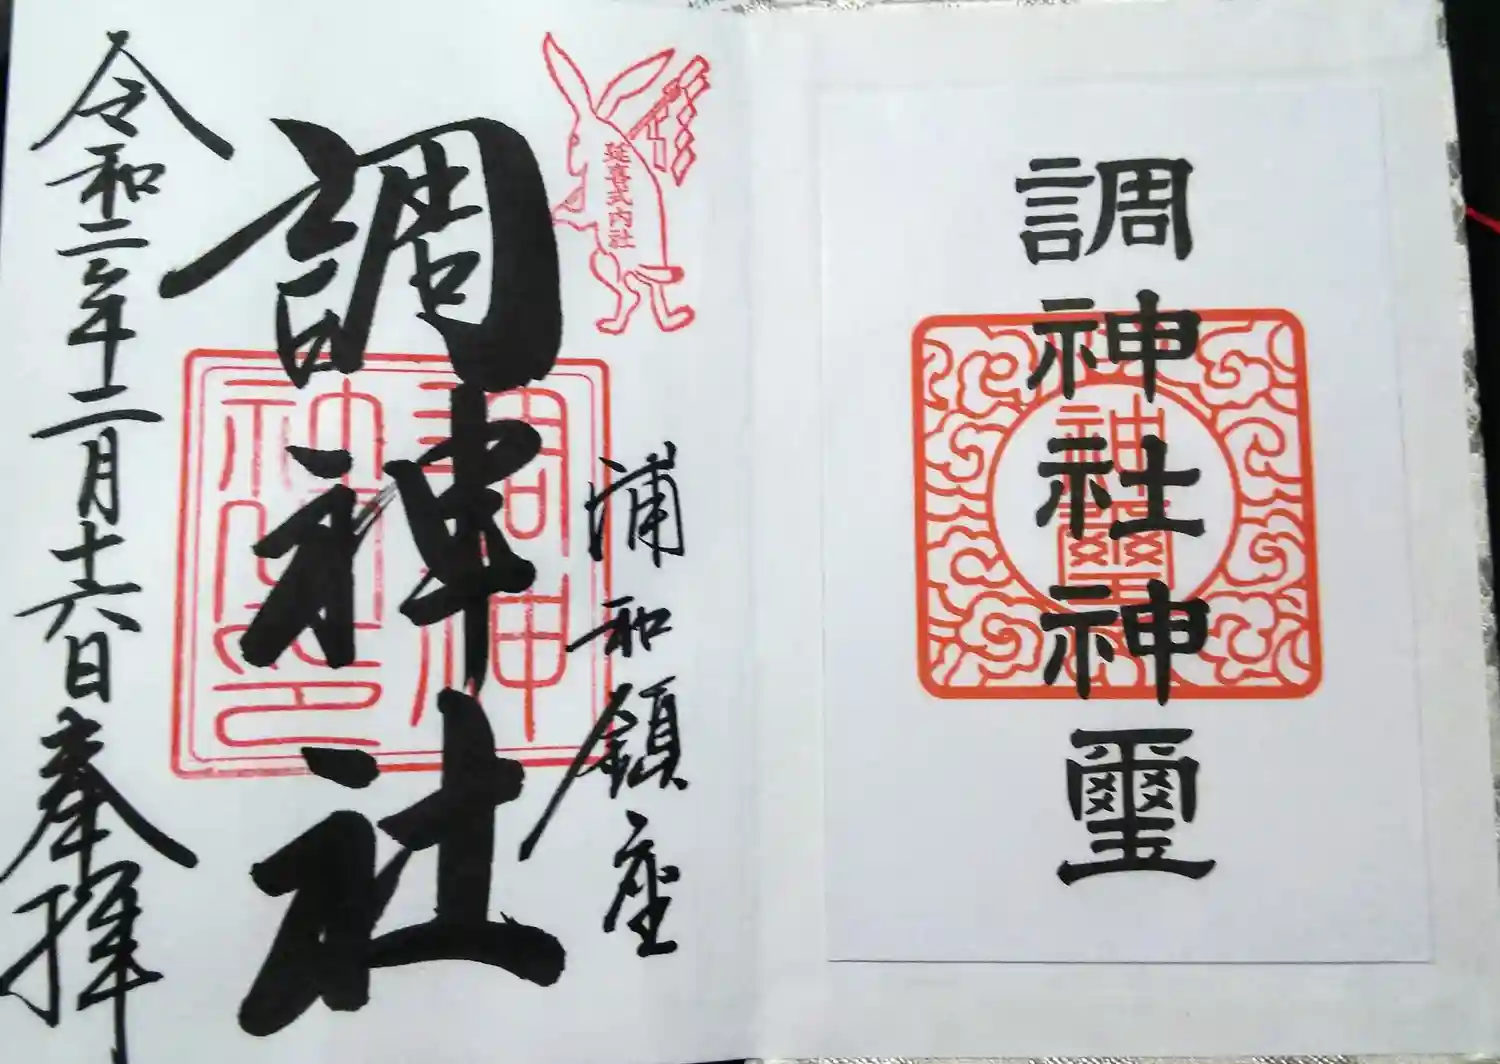 調神社神璽
神璽
延喜式内社
浦和鎮座
調神社
調神
社之印
令和二年十二月十六日奉拝